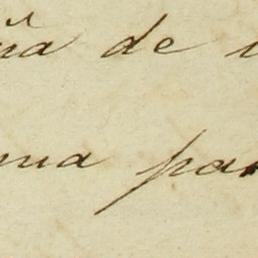 ña de
ma par